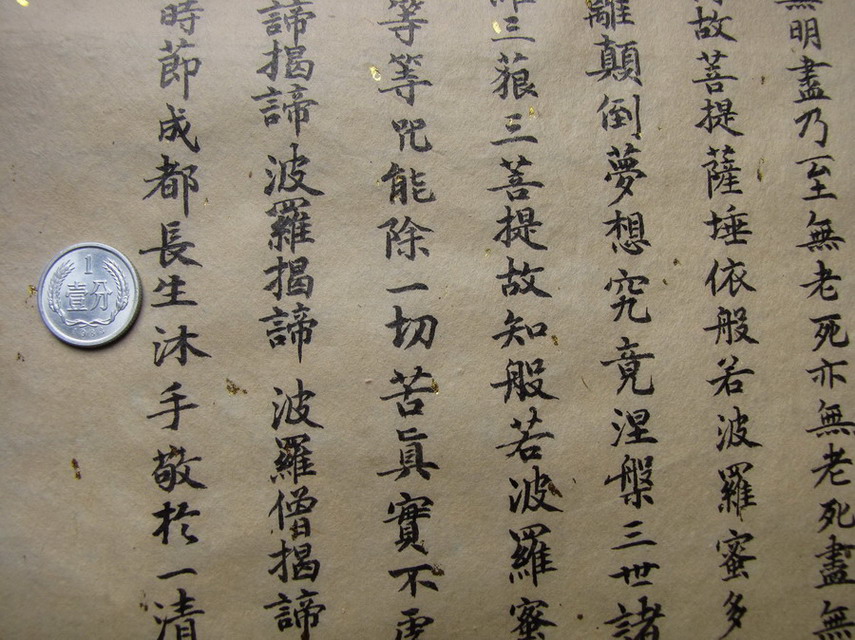 無明盡乃至無老死亦無老死盡無
故菩提薩埵依般若波羅蜜多
離顛倒夢想究竟涅槃三世諸
三藐三菩提故知般若波羅蜜
等等咒能除一切苦眞實不虛
諦揭諦 波羅揭諦 波羅僧揭諦
時節成都長生沐手敬於一清
1
壹分